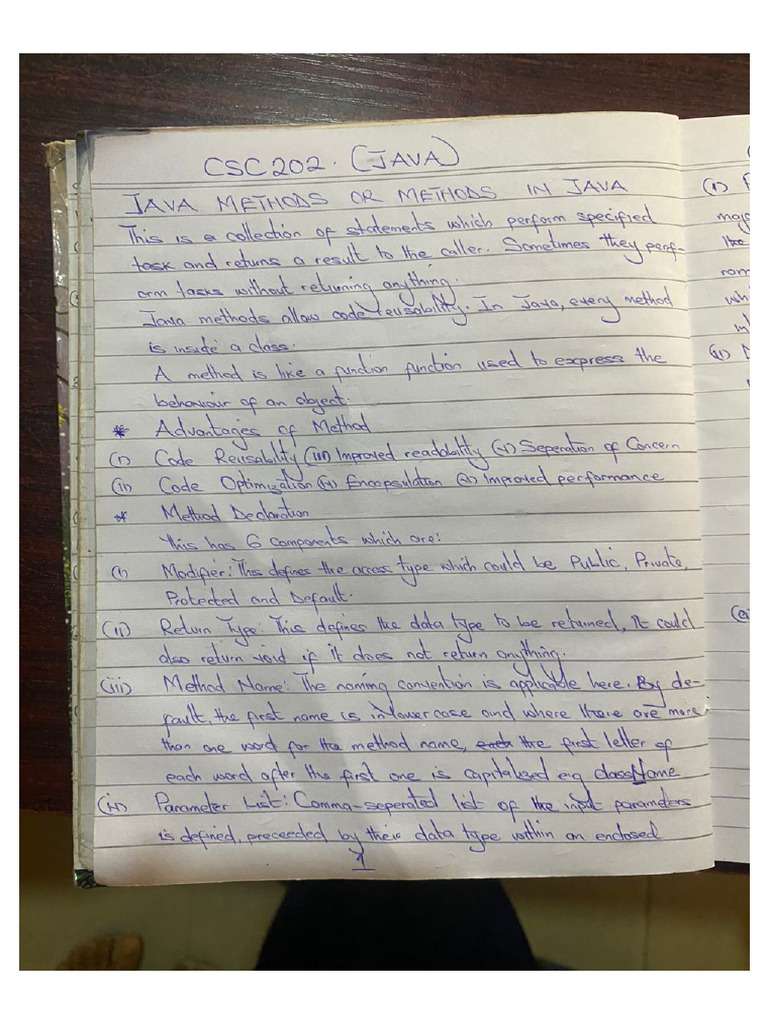 CSC 202. (JAVA)
JAVA METHODS OR METHODS IN JAVA
This is a collection of statements which perform specified
task and returns a result to the caller. Sometimes they perf-
orm tasks without returning anything.
Java methods allow code reusability. In Java, every method
is inside a class.
A method is like a function function used to express the
behaviour of an object.
* Advantages of Method
(i) Code Reusability (iii) Improved readability (v) Seperation of Concern
(ii) Code Optimization (iv) Encapsulation (vi) Improved performance
* Method Declaration
This has 6 components which are:
(i) Modifier: This defines the access type which could be Public, Private,
Protected and Default.
(ii) Return Type: This defines the data type to be returned, it could
also return void if it does not return anything.
(iii) Method Name: The naming convention is applicable here. By de-
fault, the first name is in lower case and where there are more
than one word for the method name, the first letter of
each word after the first one is capitalised eg className
(iv) Parameter List: Comma-seperated list of the input parameters
is defined, preceeded by their data type within an enclosed
1
(i)
(ii)